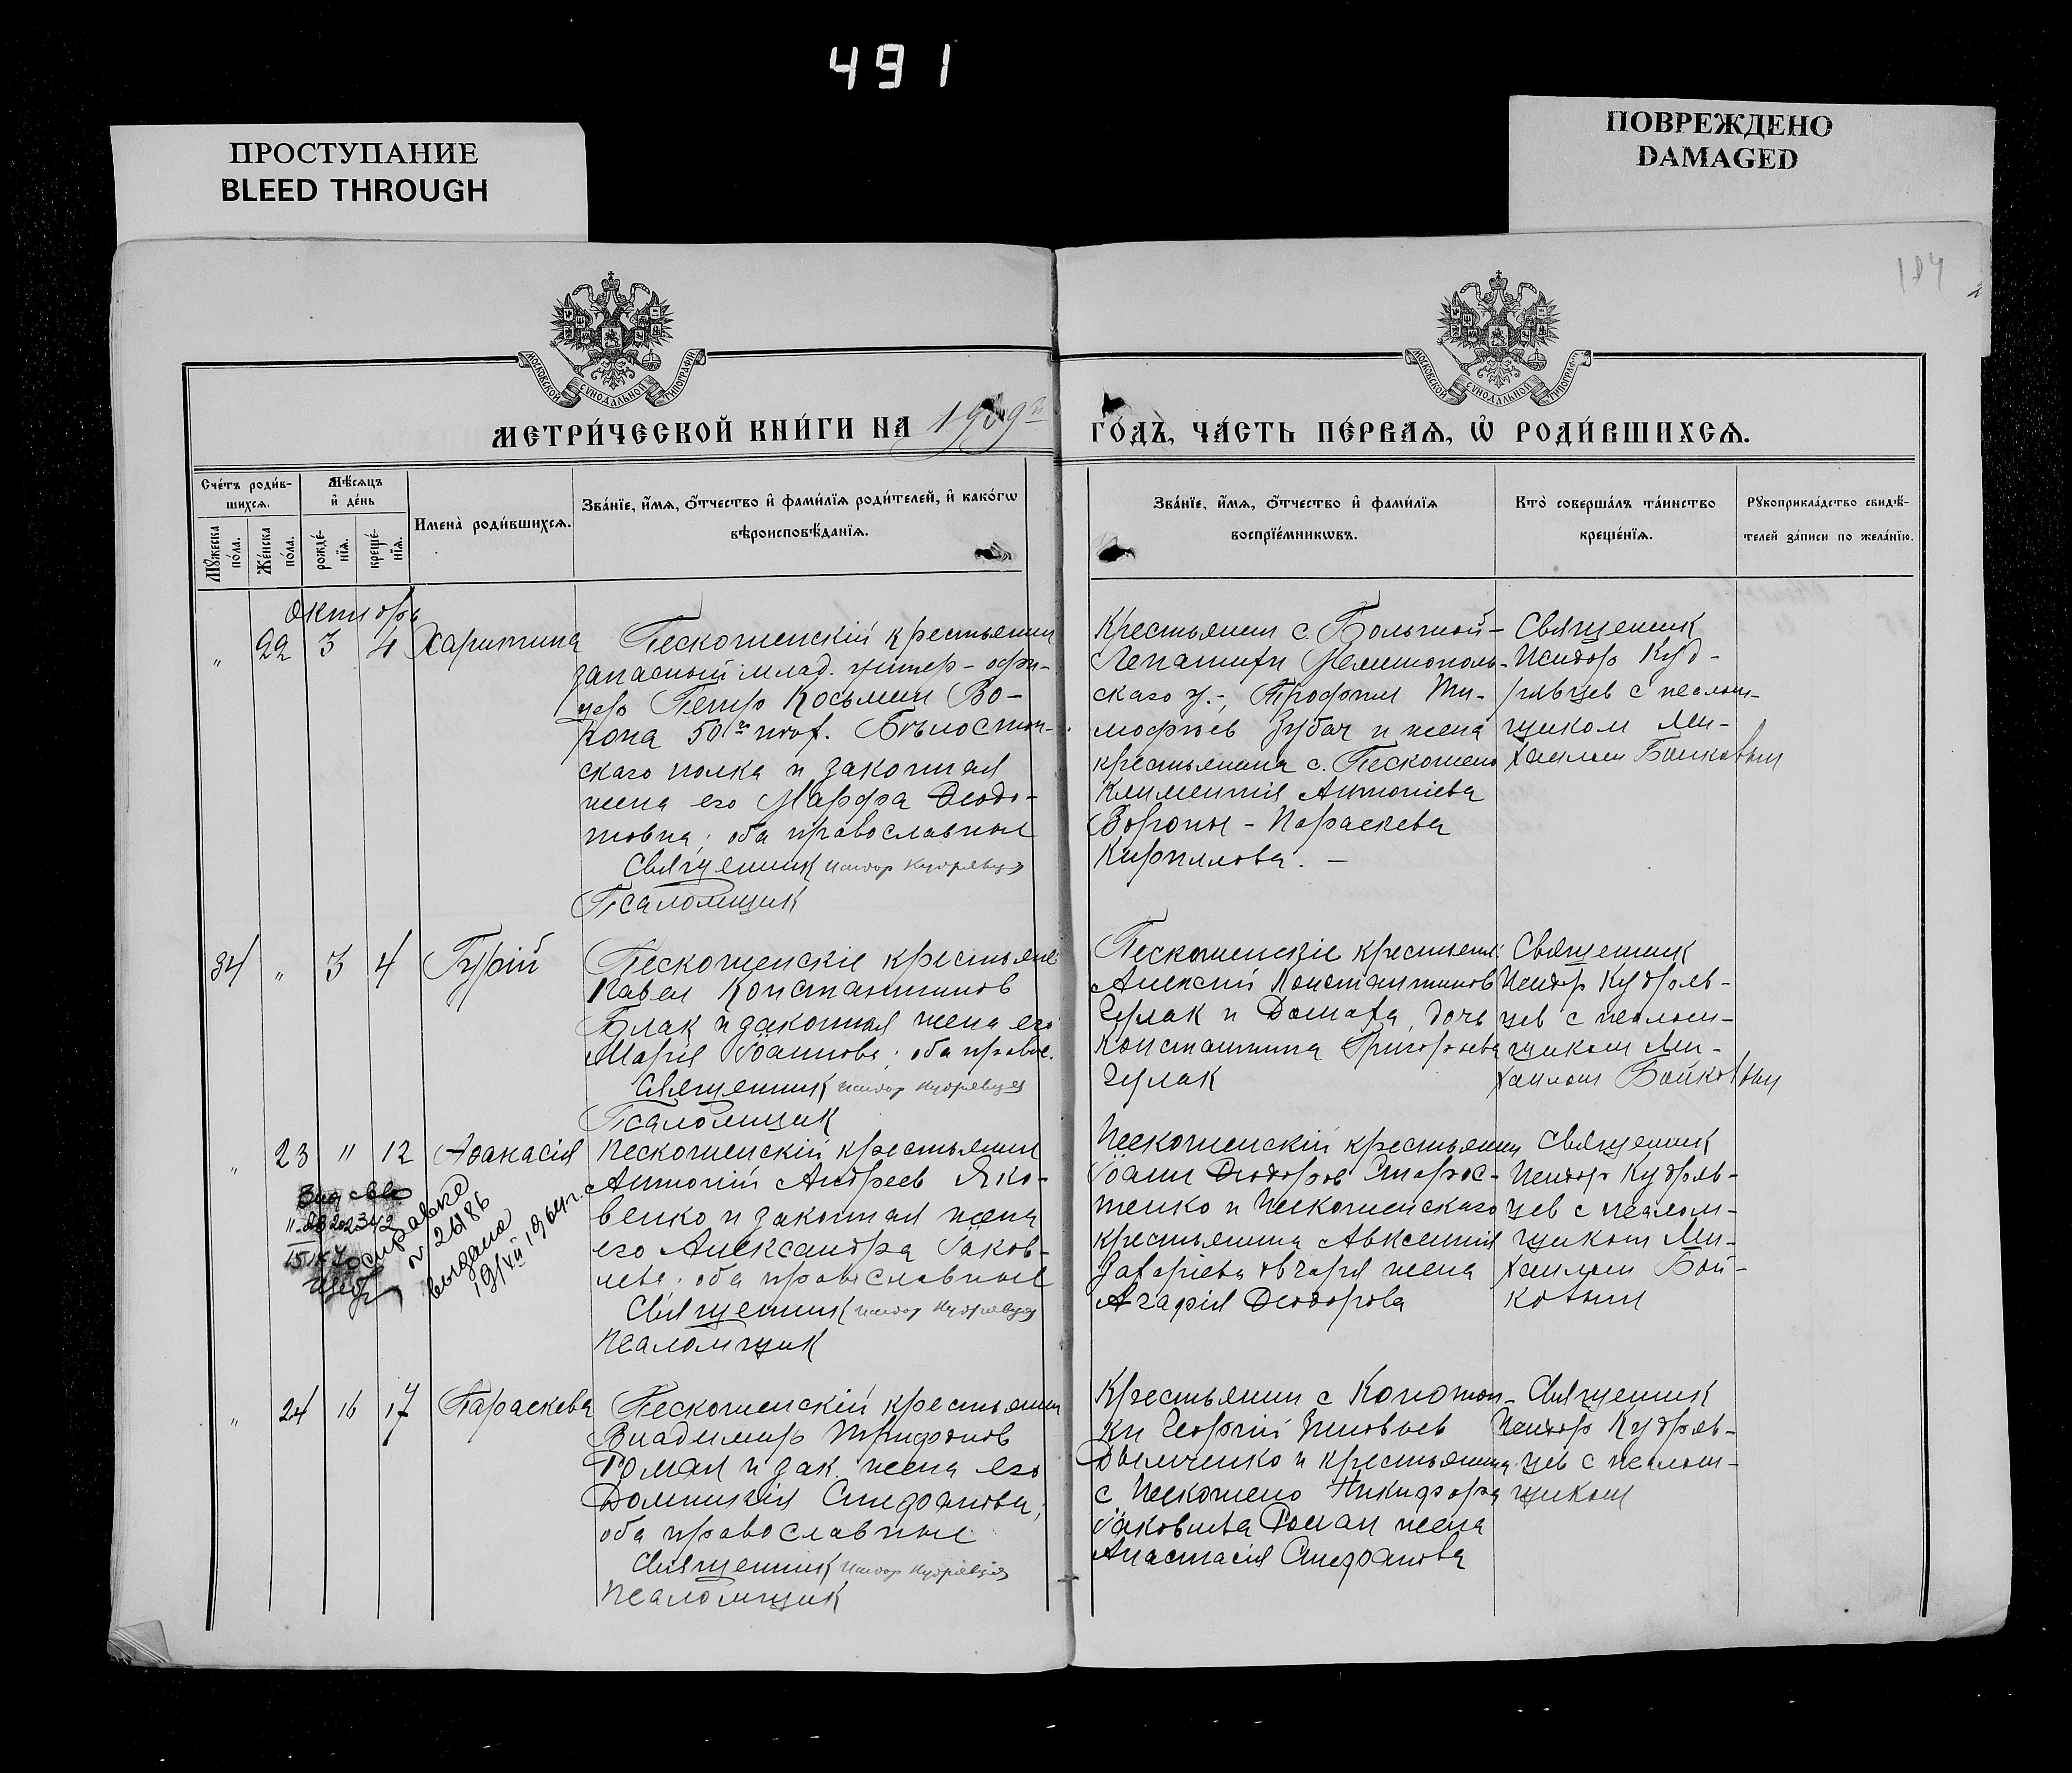 491
ПРОСТУПАНИЕ
BLEED THROUGH
ПОВРЕЖДЕНО
DAMAGED
194
МОСКОВСКОЙ СѴНОДАЛЬНОЙ ТИПОГРАФІИ
МОСКОВСКОЙ СѴНОДАЛЬНОЙ ТИПОГРАФІИ
МЕТРИ́ЧЕСКОЙ КНИ́ГИ НА 1909 ГО́ДЪ, ЧА́СТЬ ПЕ́РВАѦ, Ѡ҆ РОДИ́ВШИХСѦ.
Сче́тъ роди́в-
шихсѧ.
Мѣ́сѧцъ
и҆ де́нь
Мꙋ́жеска
по́ла.
Же́нска
по́ла.
рожде́-
нїѧ.
креще́-
нїѧ.
Имена̀ роди́вшихсѧ.
Зва́нїе, и҆́мѧ, ѻ҆́тчество и҆ фами́лїѧ роди́телей, и҆ како́гѡ
вѣроисповѣ́данїѧ.
Зва́нїе, и҆́мѧ, ѻ҆́тчество и҆ фами́лїѧ
воспрїе́мникѡвъ.
Кто̀ соверша́лъ та́инство
креще́нїѧ.
Рꙋкоприкла́дство свидѣ́-
телей за́писи по жела́нїю.
Октябрь
" 22 3 4 Харитина
Пескошенскій крестьянин
запасный млад. унтер-офи-
цер Петр Косьмин Во-
рона 50го пѣх. Бѣлосток-
скаго полка и законная
жена его Марфа Ѳеодо-
товна; оба православные
Священник Исидор Кудрявцев
Псаломщик
Крестьянин с. Большой-
Лепатихи Мелитополь-
скаго у.-, Трофим Ти-
мофѣев Зубач и жена
крестьянина с. Пескошено
Климентія Антоніева
Вороны - Параскева
Кириллова. -
Священник
Исидор Куд-
рявцев с псалом-
щиком Ми-
хаилом Бойковым
34 " 3 4 Гурій
Пескошенскіе крестьяне
Павел Константинов
и законная жена его
Марія Іоаннова; оба правос.
Священник Исидор Кудрявцев
Псаломщик
Пескошенскіе крестьяне:
Алексій Константинов
Гулак и Домаха, дочь
Константина Григорьева
Гулак
Священник
Исидор Кудряв-
цев с псалом-
щиком Ми-
хаилом Бойковым
" 23 " 12 Аѳанасія
Пескошенскій крестьянин
Антоній Андреев Яко-
венко и законная жена
его Александра Іаков-
лева; оба православные
Священник Исидор Кудрявцев
Псаломщик
справка
N 26186
выдана
19/VII 1964г.
Пескошенскій крестьянин
Іоанн Ѳеодоров Старос-
тенко и Пескошенскаго
крестьянина Авксентія
Захаріева Овчаря жена
Агафія Ѳеодорова
Священник
Исидор Кудряв-
цев с псалом-
щиком Ми-
хаилом Бой-
ковым
" 24 16 17 Параскева
Пескошенскій крестьянин
Владимир Трифонов
Роман и зак. жена его
Домникія Стефанова;
оба православные
Священник Исидор Кудрявцев
Псаломщик
Крестьянин с Конотоп-
ки Георгій Зиновьев
и крестьянина
с. Пескошено Никифора
Іаковлева Роман жена
Анастасія Стефанова
Священник
Исидор Кудряв-
цев с псалом-
щиком